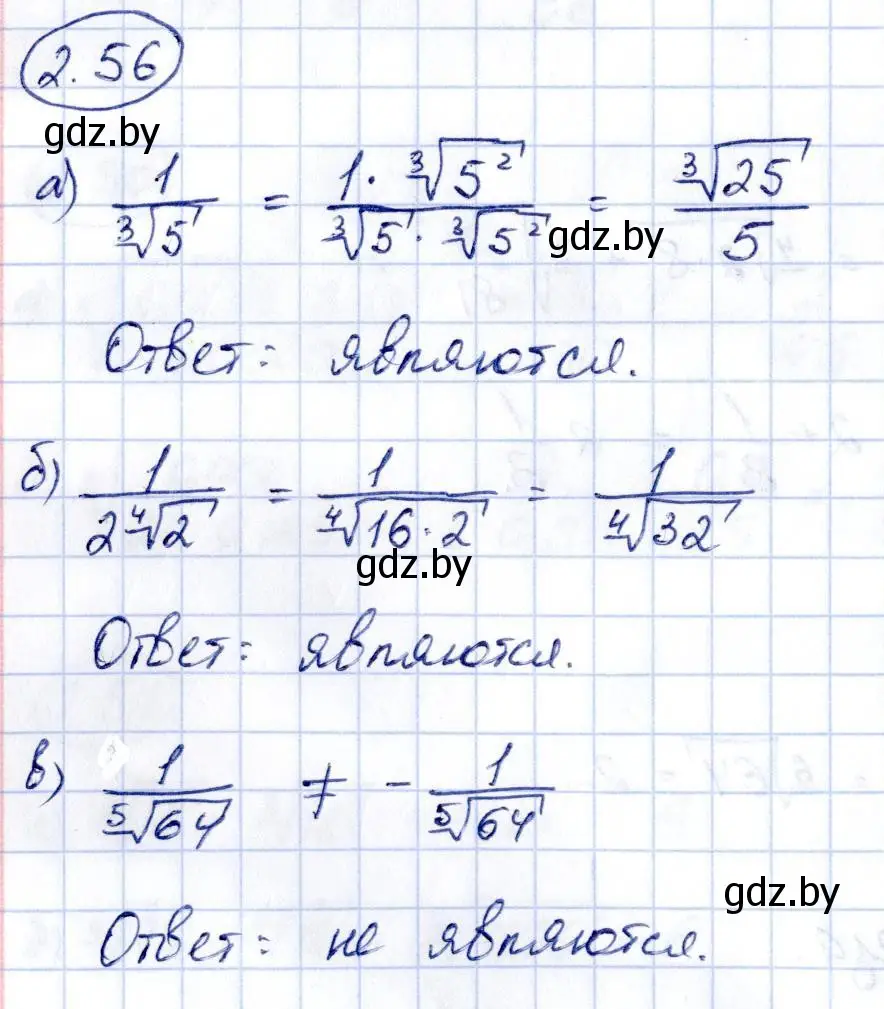 2.56
gdz.by
а) 1/∛5 = 1·∛5²/∛5·∛5² = ∛25/5
gdz.by
Ответ: являются.
б) 1/2∜2 = 1/∜16·2 = 1/∜32
gdz.by
Ответ: являются.
в) 1/⁵√64 ≠ -1/⁵√64
gdz.by
Ответ: не являются.